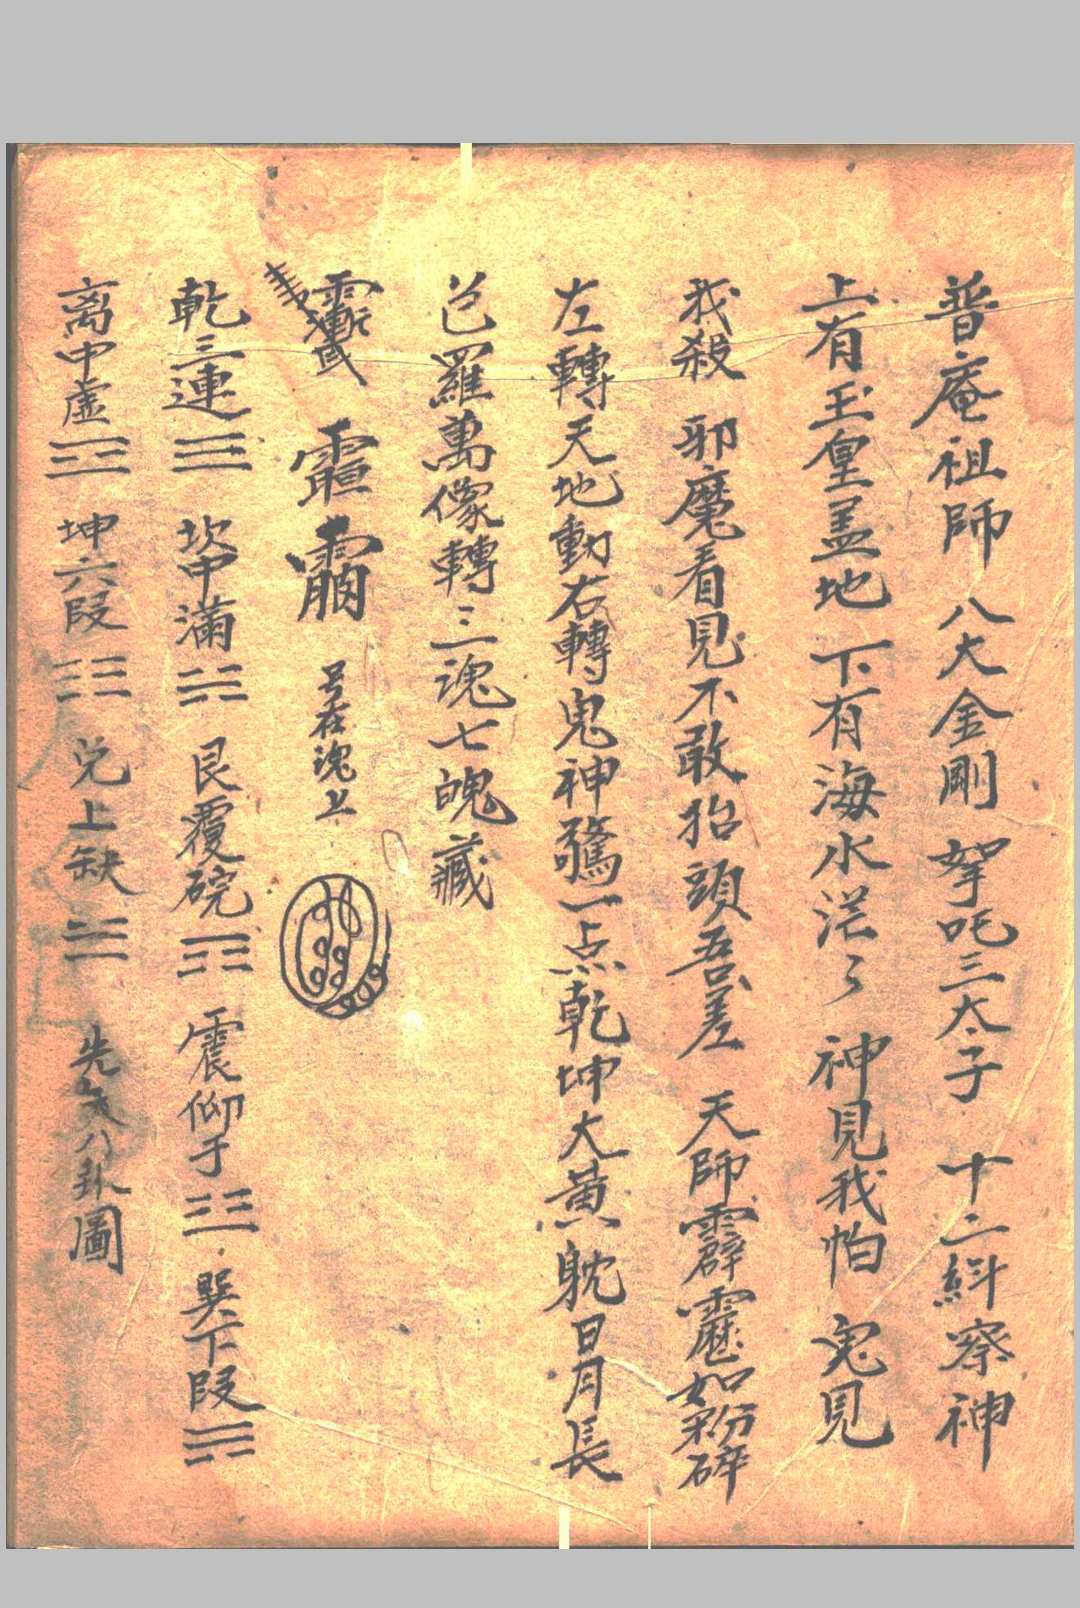 普庵祖師 八大金剛 拏吒三太子 十二斜察神
上有玉皇盖地 下有海水茫〻 神見我怕 鬼見
我殺 邪魔看見不敢抬頭吾差 天師霹靂如粉碎
左轉天地動右轉鬼神驚一点乾坤大黃躭日月長
包羅萬像轉三魂七魄藏
号在魂上
乾三連☰ 坎中滿☵ 艮覆碗☶ 震仰于☳ 巽下段☴
离中虛☲ 坤六段☷ 兑上缺☱ 先天八卦圖